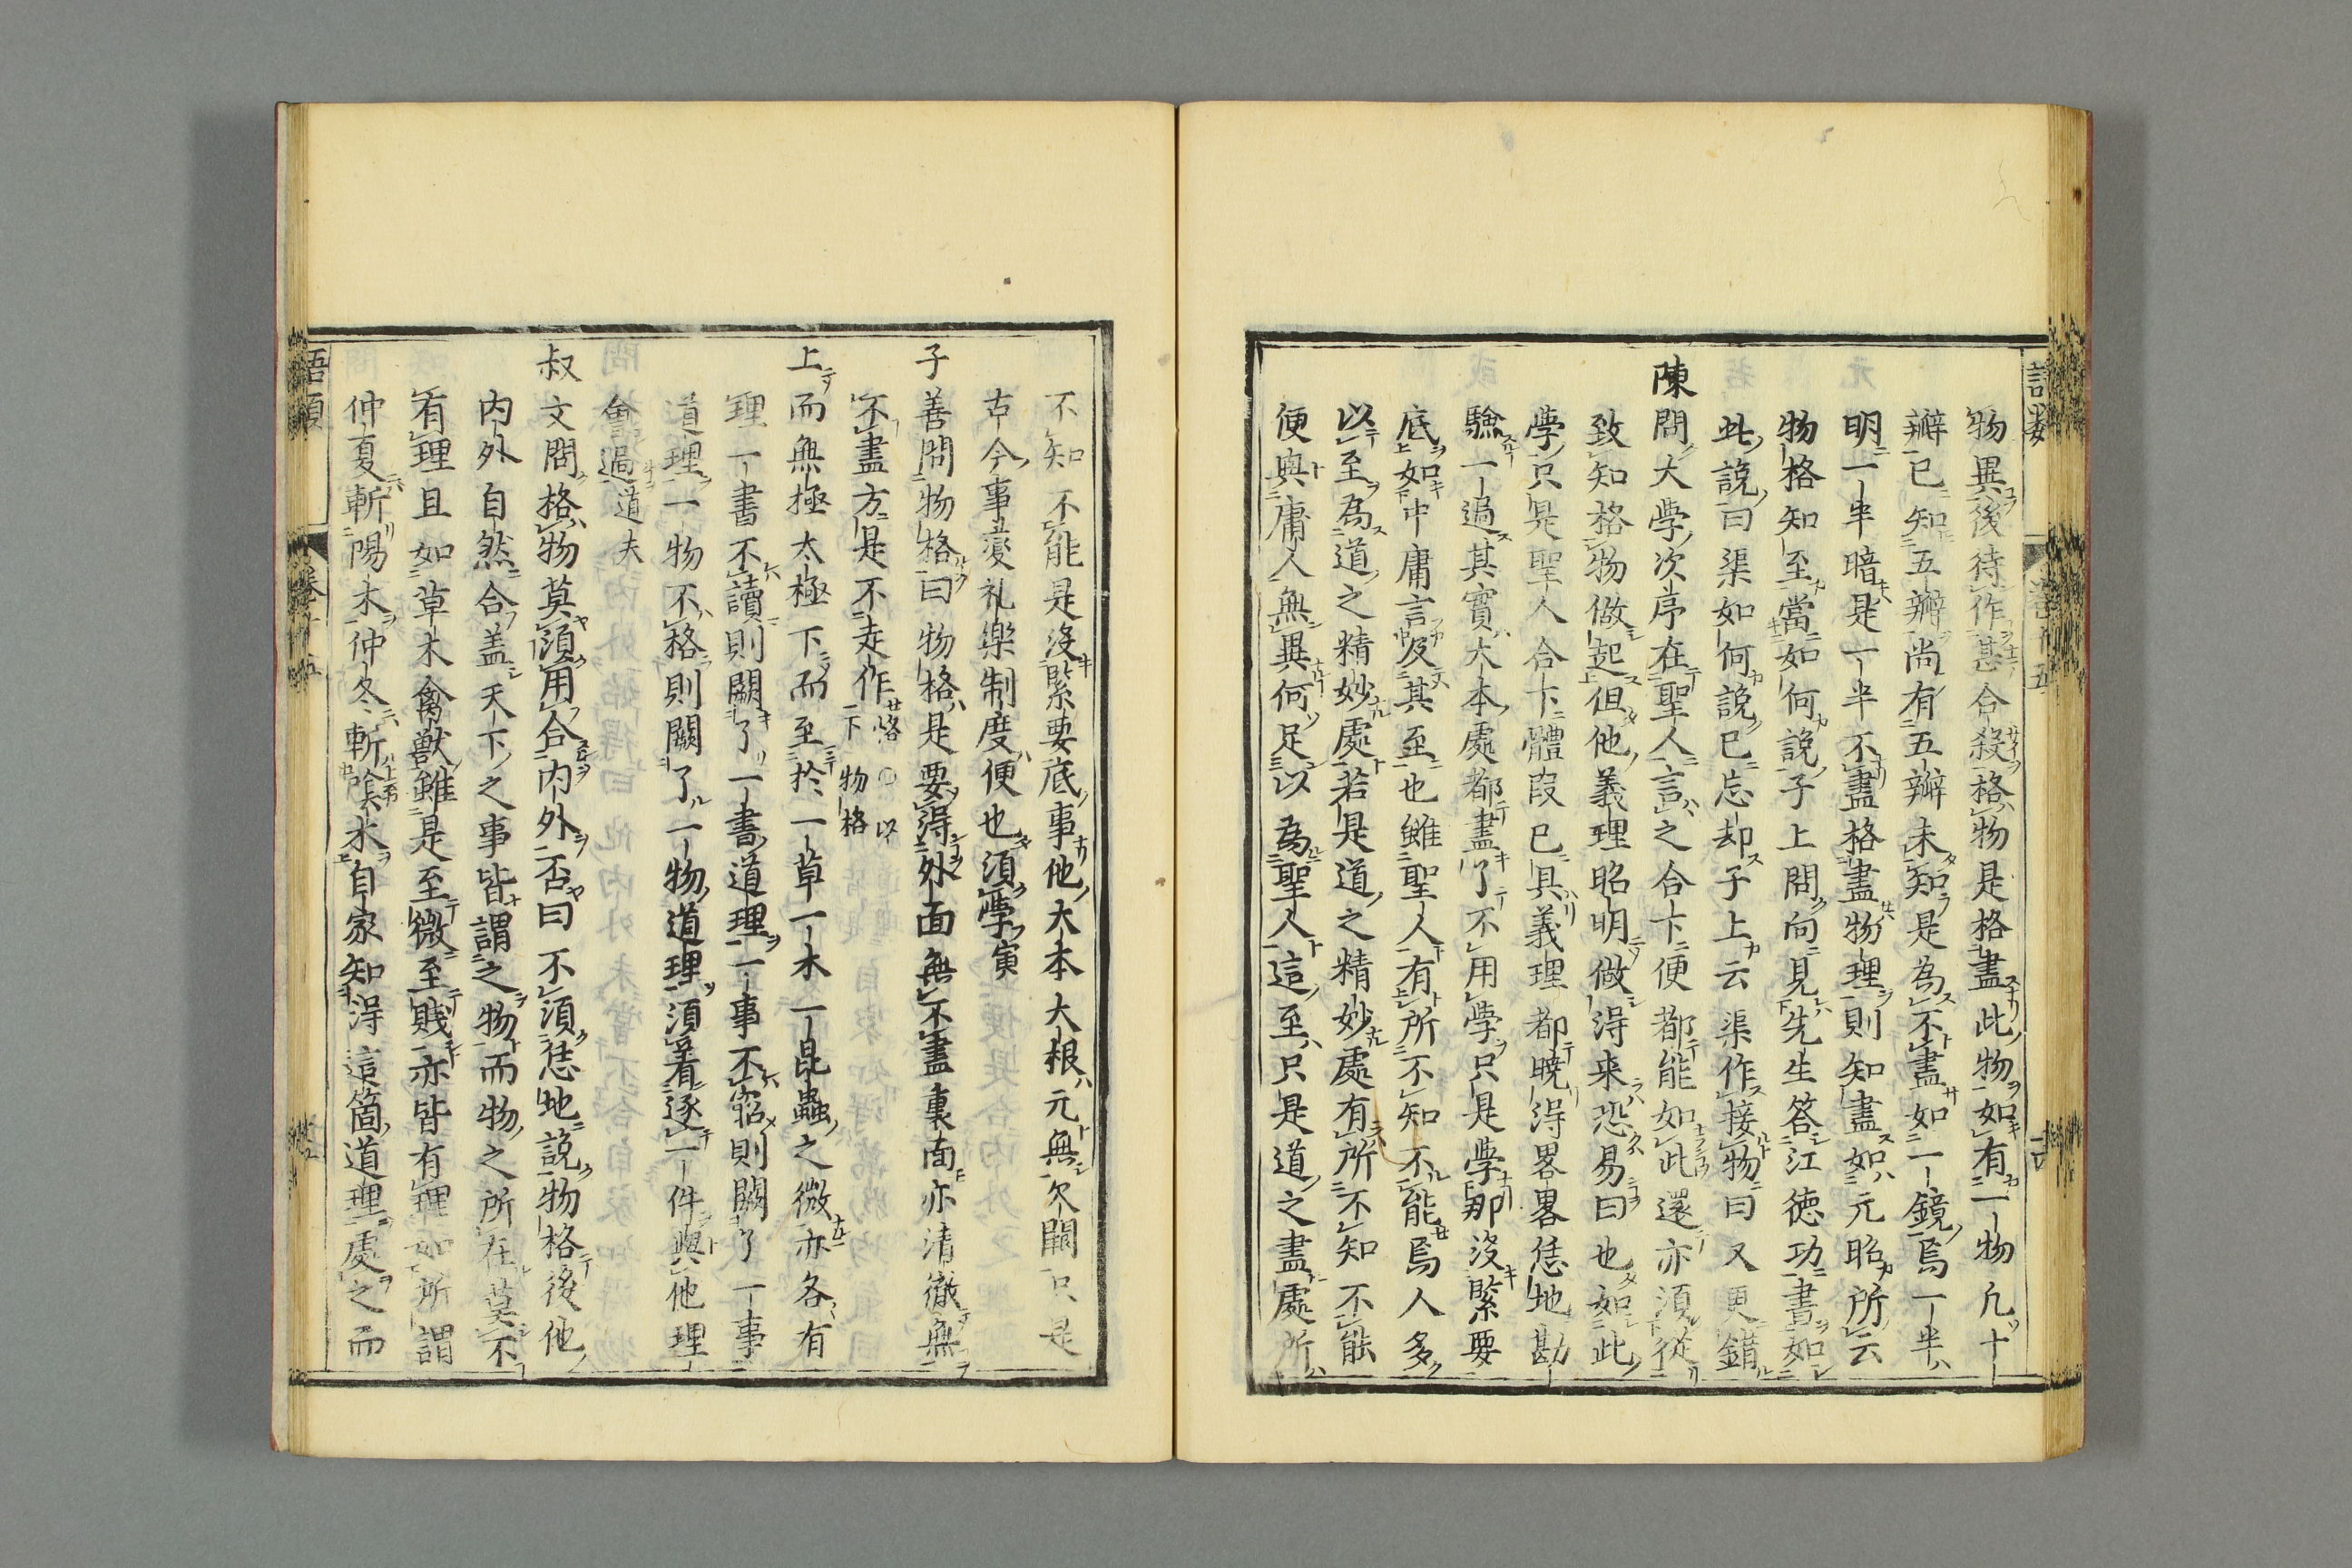 物異後待作甚合殺格物是格盡此物如有一物凢十
瓣已知五瓣尚有五瓣未知是為不盡如一鏡焉一半
明一半暗是一半不盡格盡物理則知盡如元昭所云
物格知至當如何說子上問向見先生答江徳功書如
此說曰渠如何說已忘却子上云渠作接物曰又更錯
陳問大學次序在聖人言之合下便都能如此還亦須從
致知格物做起但他義理昭明做得来恐易曰也如此
學只是聖人合下體段已具義理都曉得畧畧恁地勘
驗一過其實大本處都盡了不用學只是學那没緊要
底如中庸言及其至也雖聖人有所不知不能焉人多
以至為道之精妙處若是道之精妙處有所不知不能
便與庸人無異何足以為聖人這至只是道之盡處所
不知不能是没緊要底事他大本大根元無欠闕只是
古今事變礼樂制度便也須學寓
子善問物格曰物格是要得外面無不盡裏面亦清徹無
不盡方是不走作恪○以下物格
上而無極太極下而至於一草一木一昆蟲之微亦各有
理一書不讀則闕了一書道理一事不窮則闕了一事
道理一物不格則闕了一物道理須着逐一件與他理
會過道夫
叔文問格物莫須用合内外否曰不須恁地說物格後他
内外自然合盖天下之事皆謂之物而物之所在莫不
有理且如草木禽獸雖是至微至賤亦皆有理如所謂
仲夏斬陽木仲冬斬隂木自家知得這箇道理處之而
語類
卷十五